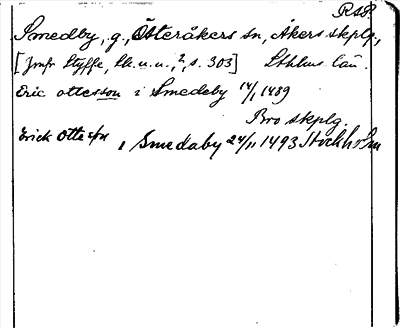 RAP.
Smedby, g., Österåkers sn, Åkers skplg,
[Jmfr Styffe, Sk. u. u.², s. 303] Sthlms län.
Eric ottesson i Smedeby 14/1 1489
Bro skplg.
Erick Otte i Smedaby 24/11 1493 Stockholm